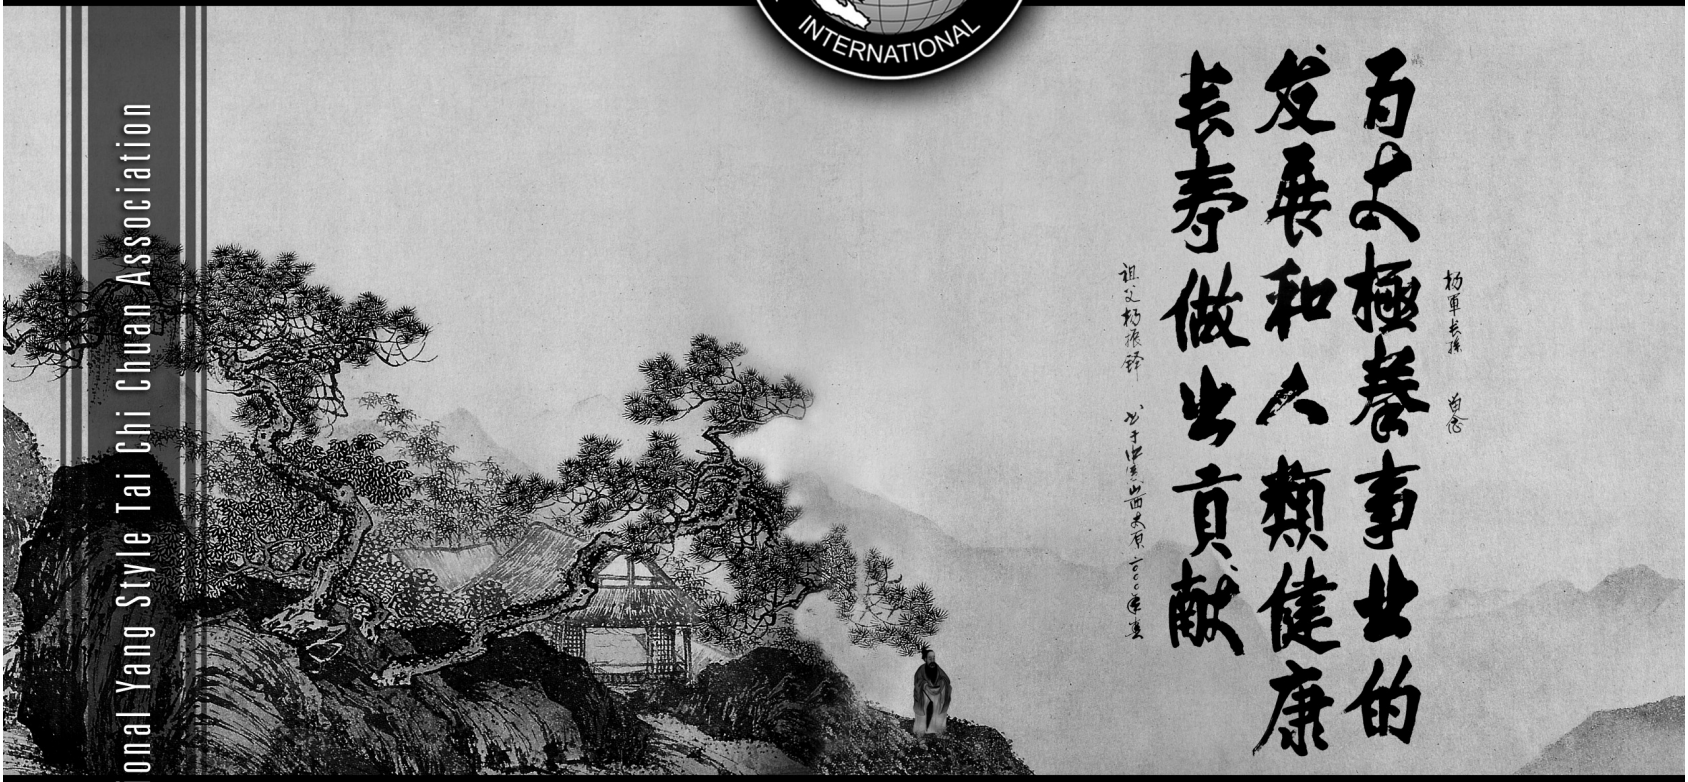 INTERNATIONAL
onal Yang Style Tai Chi Chuan Association
杨軍长孫 留念
为太極拳事业的
发展和人類健康
长寿做出貢献
祖父杨振铎 书于中国山西太原二〇〇〇年夏